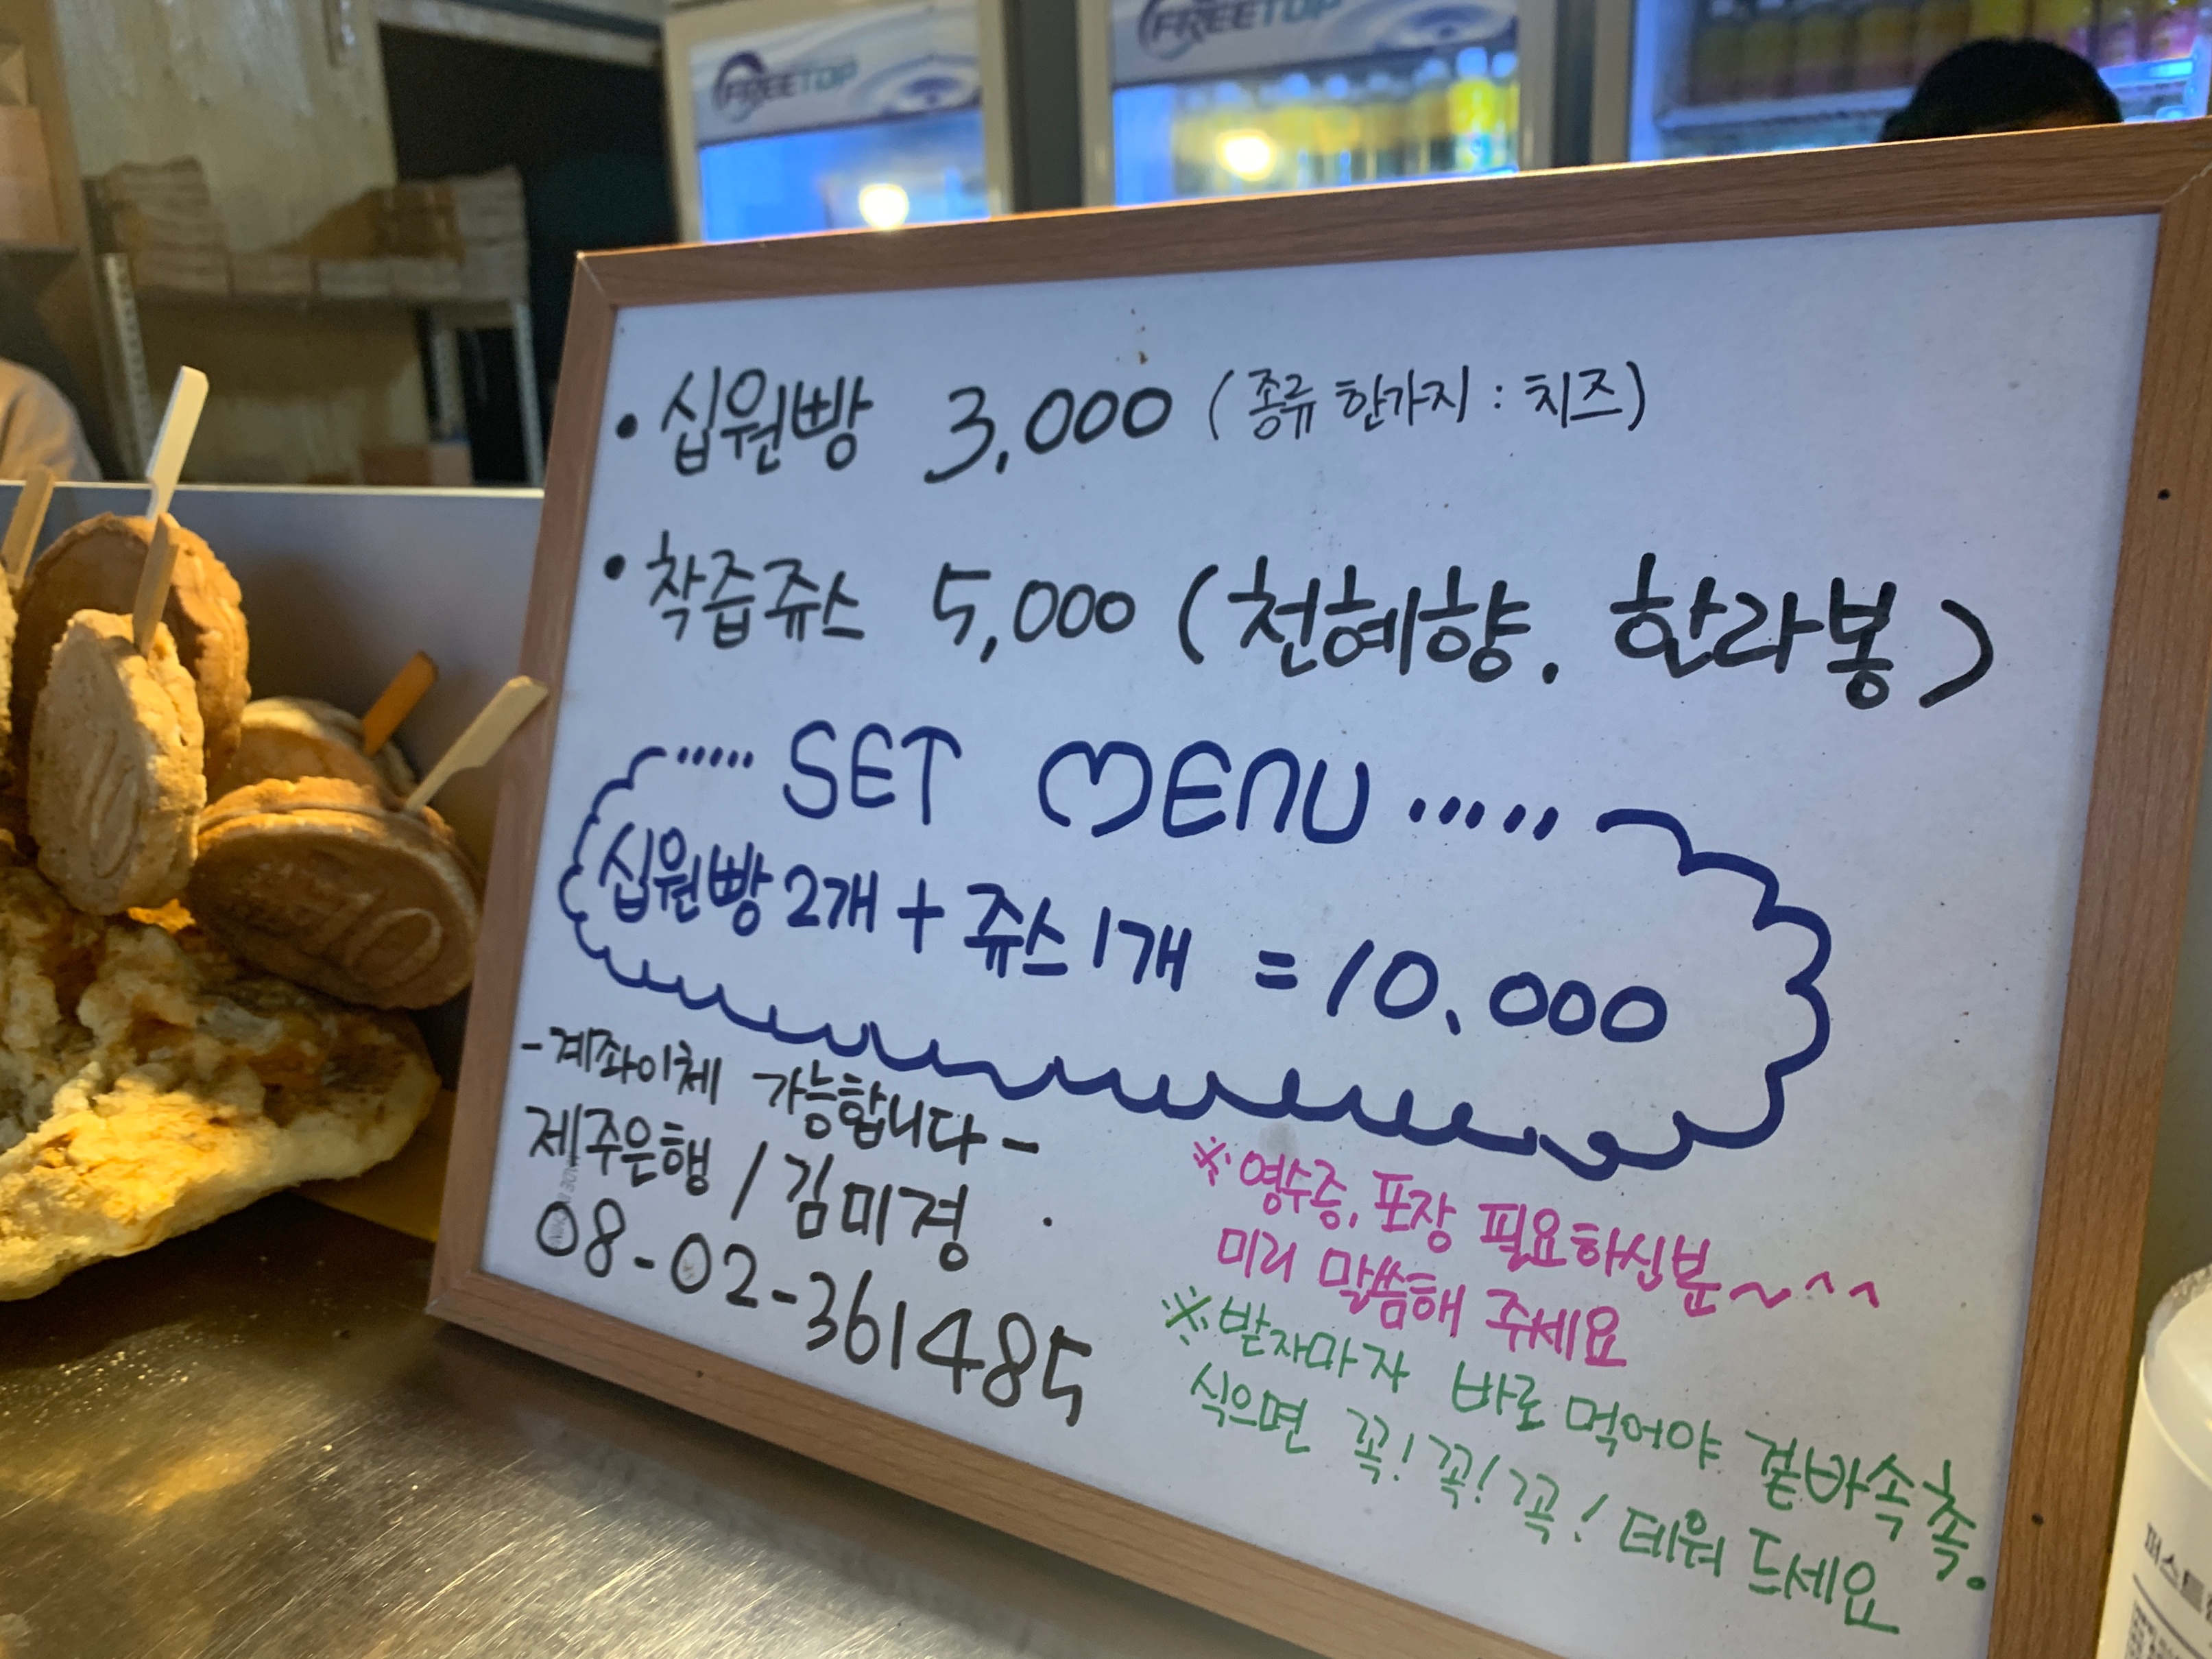 FREETOP
FREETOP
• 십원빵 3,000 (종류 한가지 : 치즈)
• 착즙쥬스 5,000 (천혜향. 한라봉)
..... SET MENU .....
십원빵 2개 + 쥬스 1개 = 10.000
-계좌이체 가능합니다-
제주은행 / 김미경
08-02-361485
※ 영수증, 포장 필요하신분~^^
미리 말씀해 주세요
※ 받자마자 바로 먹어야 겉바속촉.
식으면 꼭! 꼭! 꼭! 데워 드세요
10